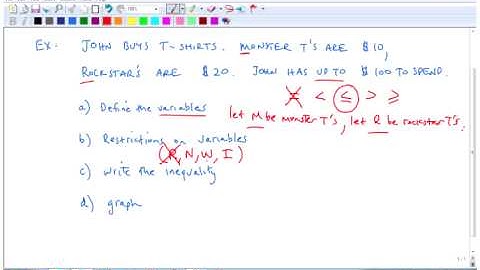 Ex: JOHN BUYS T-SHIRTS. MONSTER T'S ARE $10,
ROCKSTAR'S ARE $20. JOHN HAS UP TO $100 TO SPEND.
= < ≤ > ≥
a) Define the variables
let M be monster T's, let R be rockstar T's.
b) Restrictions on variables
(R, N, W, I)
c) write the inequality
d) graph